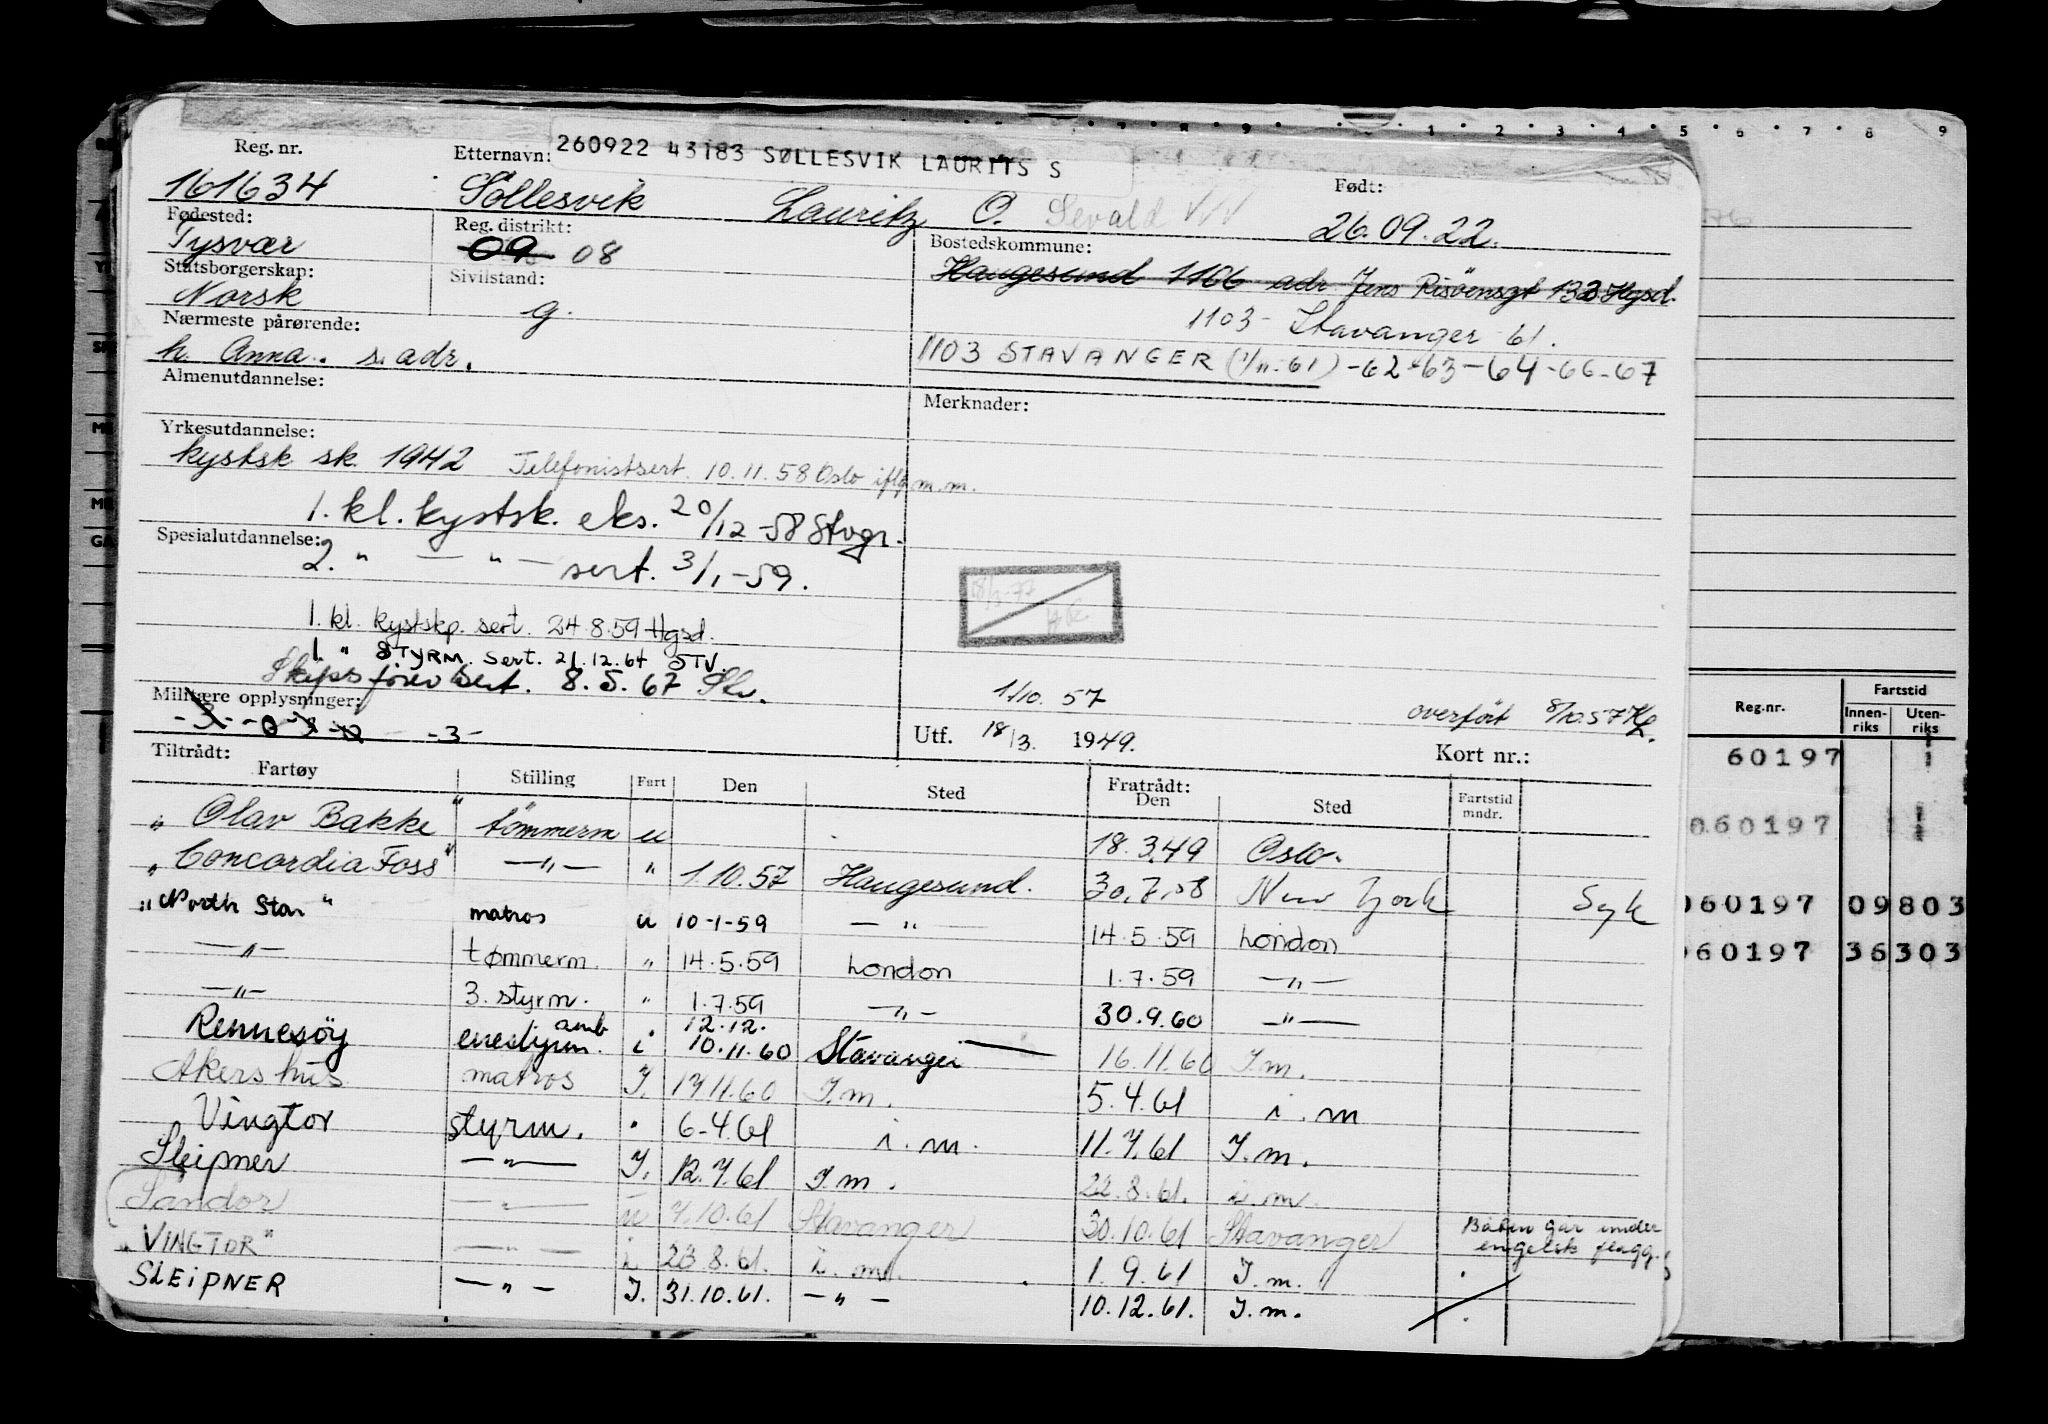 260922 43183 SØLLESVIK LAURITS S
Reg. nr. Etternavn: Født:
161634 Söllesvik Lauritz O. Sevald 26.09.22.
Fødested: Reg. distrikt: Bostedskommune:
Tysvær 09 08 Haugesund 1106 adr Jens Risöensgt 132 Hgsd.
Statsborgerskap: Sivilstand:
Norsk g. 1103 - Stavanger 61.
Nærmeste pårørende:
h. Anna. s. adr. 1103 STAVANGER (1/11-61) -62-63-64-66-67
Almenutdannelse: Merknader:
Yrkesutdannelse:
kystsk sk. 1942 Telefonistsert. 10.11.58 Oslo iflg m.m.
1. kl. kystsk. eks. 20/12-58 Stvgr.
Spesialutdannelse:
2. " — " — sert. 3/1-59.
1. kl. kystskp. sert. 24.8.59 Hgsd.
1. " STYRM. sert. 21.12.64 STV.
Skipsförersert. 8.5.67 Stv.
Militære opplysninger: 1/10.57 overfört 8/10.57
-3-
Utf. 18/3. 1949. Kort nr.:
Tiltrådt: Fratrådt:
Fartøy Stilling Fart Den Sted Den Sted Fartstid mndr.
"Olav Bakke" tömmerm u 18.3.49 Oslo.
"Concordia Foss" —"— " 1.10.57 Haugesund. 30.7.58 New York Syk
"North Star" matros u 10-1-59 —"— 14.5.59 London
—"— tømmerm. " 14.5.59 London 1.7.59 —"—
—"— 3. styrm. " 1.7.59 —"— 30.9.60 —"—
Rennesöy enestyrm. amb i 12.12. 10.11.60 Stavanger — 16.11.60 I.m.
Akershus matros I. 17.11.60 I.m. 5.4.61 i.m
Vingtor styrm. " 6-4.61 i.m. 11.7.61 I.m.
Sleipner —"— I. 12.7.61 I.m. 22.8.61. i.m.
(Sandor —"— u 7.10.61 Stavanger 30.10.61 Stavanger Båten går under engelsk flagg.)
"VINGTOR" —"— i 23.8.61. i.m. 1.9.61 I.m.
SLEIPNER —"— I. 31.10.61. —"— 10.12.61. I.m.
1 2 3 4 5 6 7 8 9
Reg.nr. Fartstid
Innenriks Utenriks
60197
060197
060197 09803
060197 36303